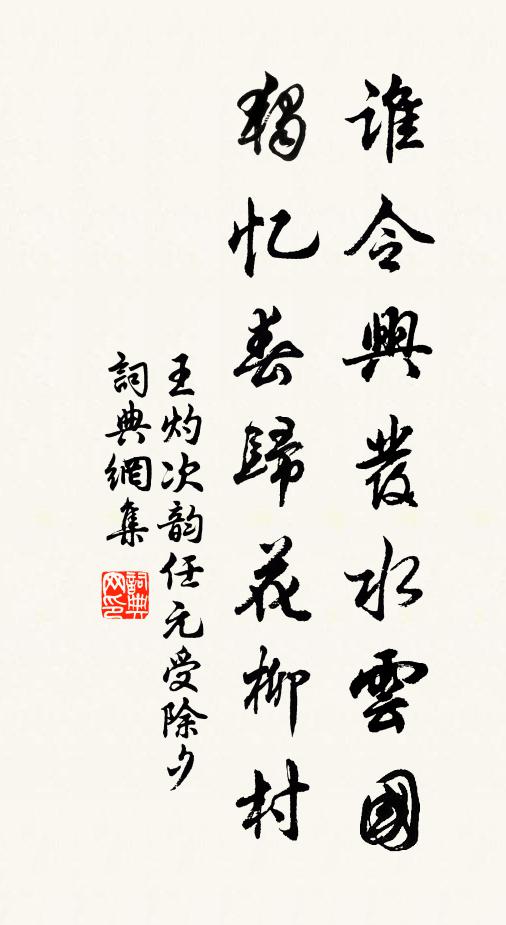 誰令興發水雲國
獨忆春歸花柳村
王灼次韵任元受除夕
詞典網集
詞典网印